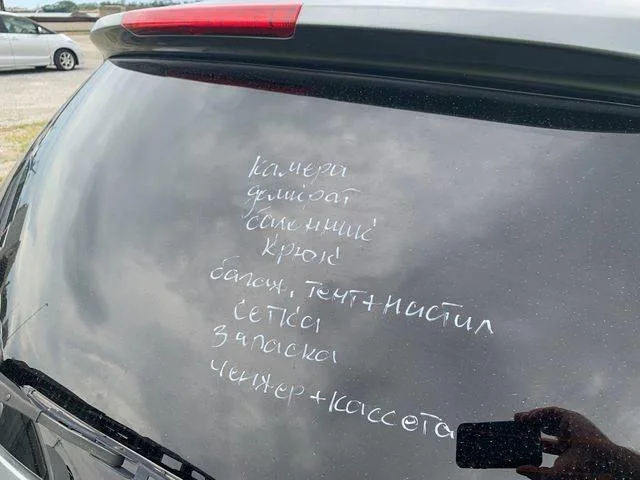 камера
домкрат
баленник
крюк
багаж. тент+настил
сетка
запаска
ченжер+кассета